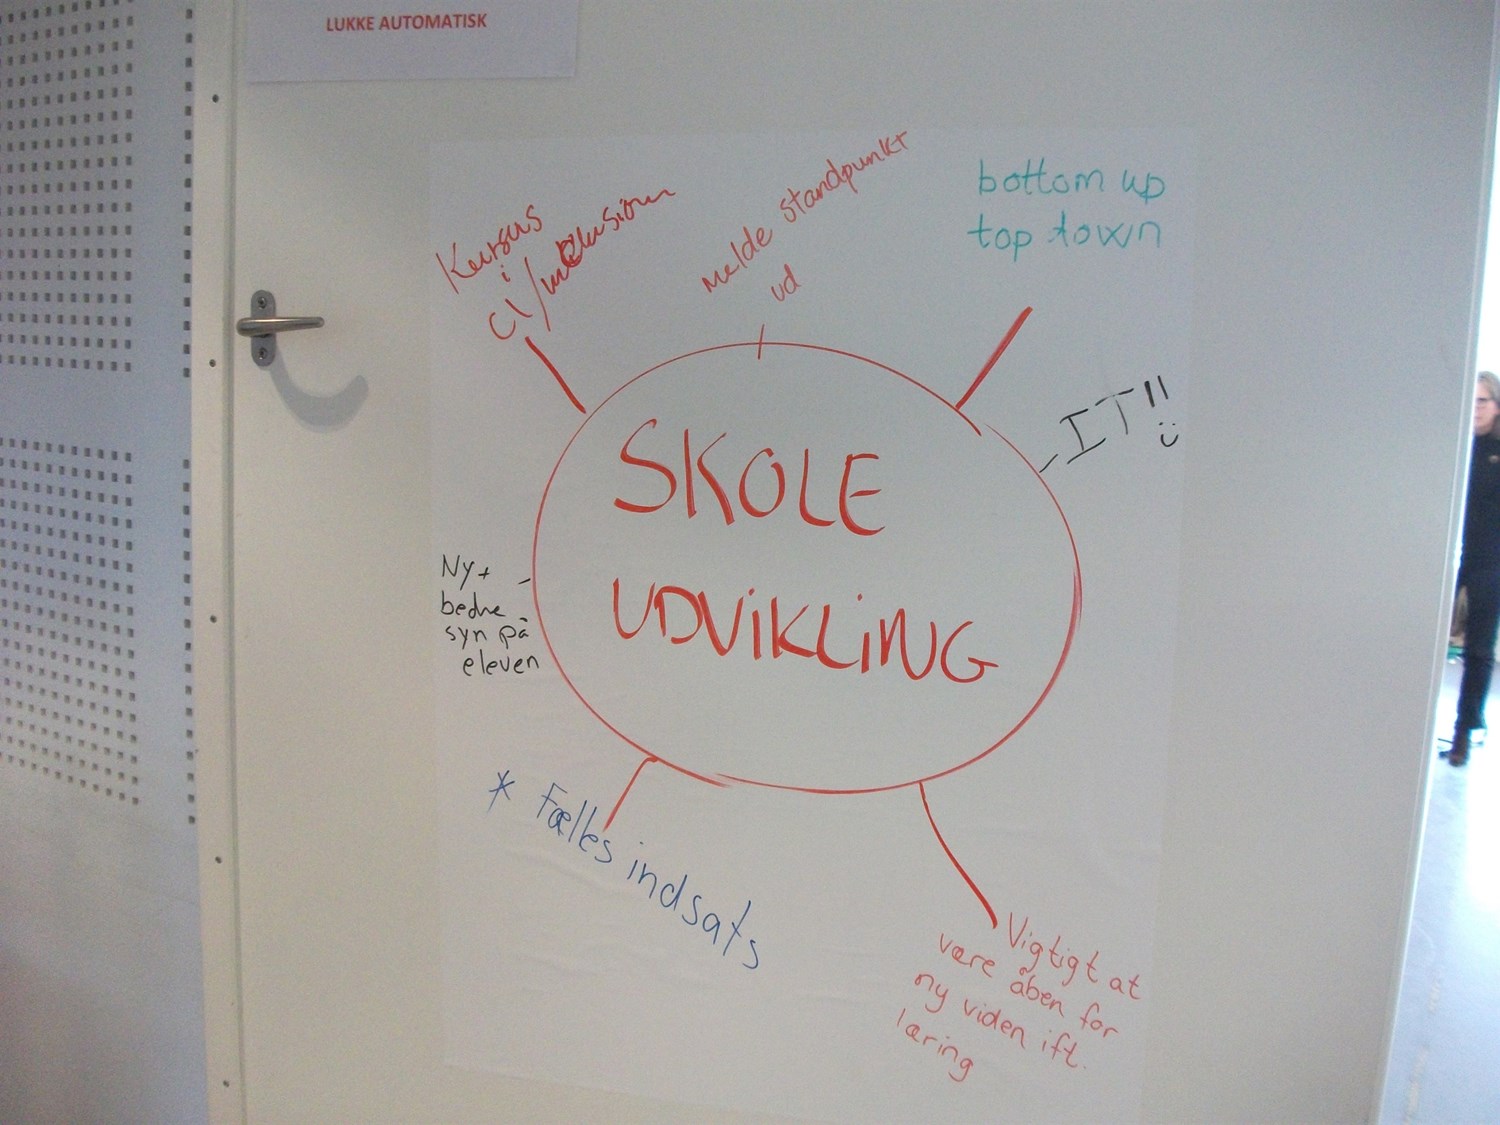 LUKKE AUTOMATISK
Kursus
i
CL/inklusion
melde standpunkt
ud
bottom up
top down
IT!!
SKOLE
UDVIKLING
Ny +
bedre
syn på
eleven
* Fælles indsats
Vigtigt at
være åben for
ny viden ift.
læring